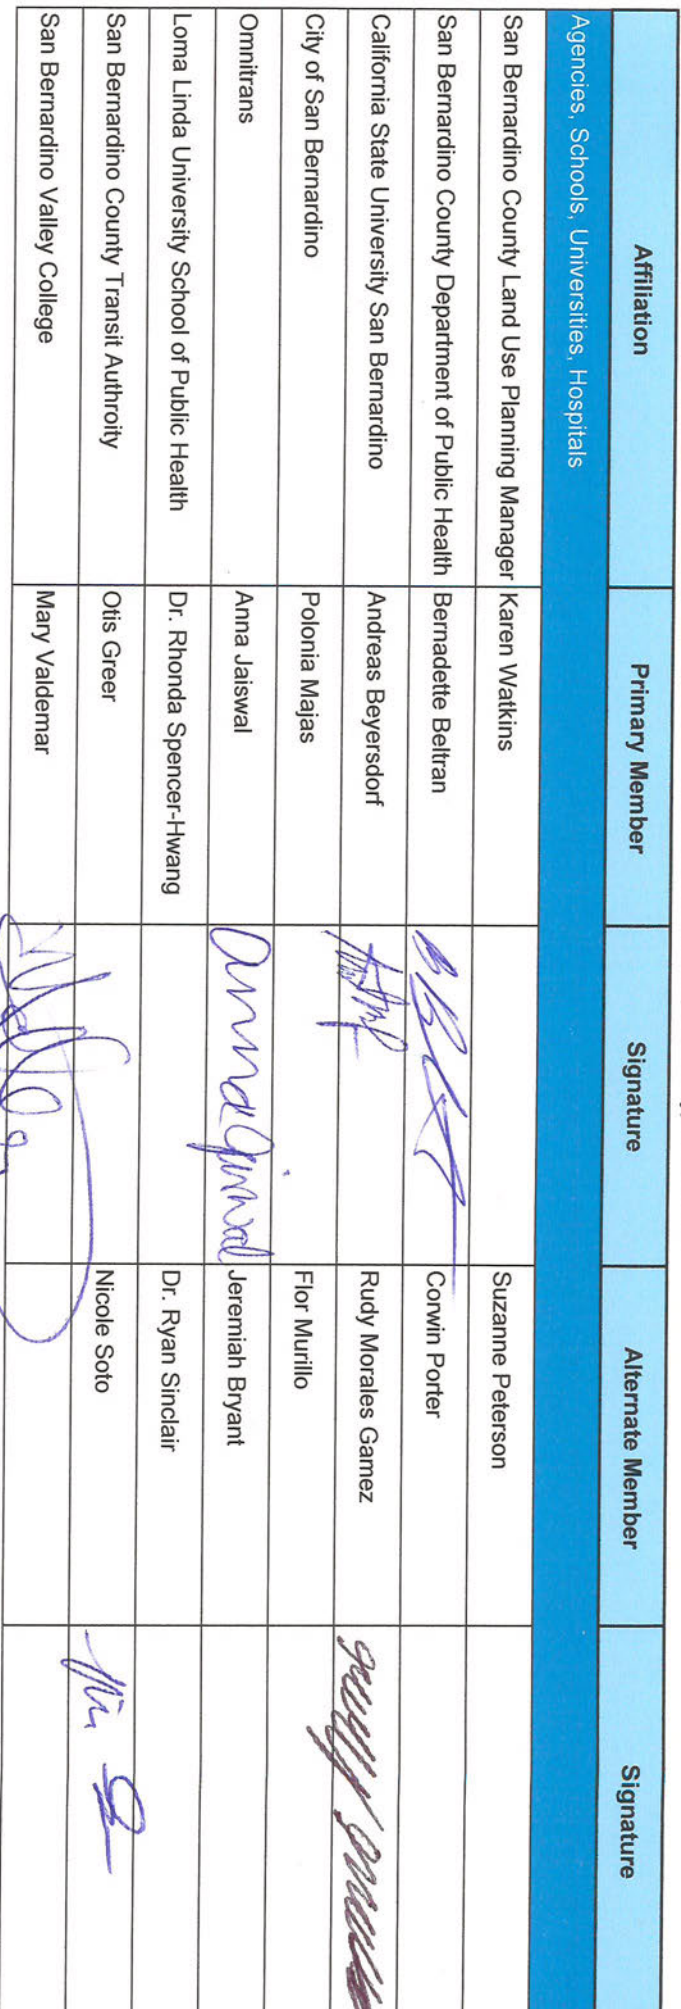 Affiliation Primary Member Signature Alternate Member Signature
Agencies, Schools, Universities, Hospitals
San Bernardino County Land Use Planning Manager Karen Watkins Suzanne Peterson
San Bernardino County Department of Public Health Bernadette Beltran Corwin Porter
California State University San Bernardino Andreas Beyersdorf Rudy Morales Gamez
City of San Bernardino Polonia Majas Flor Murillo
Omnitrans Anna Jaiswal Anna Jaiswal Jeremiah Bryant
Loma Linda University School of Public Health Dr. Rhonda Spencer-Hwang Dr. Ryan Sinclair
San Bernardino County Transit Authroity Otis Greer Nicole Soto
San Bernardino Valley College Mary Valdemar